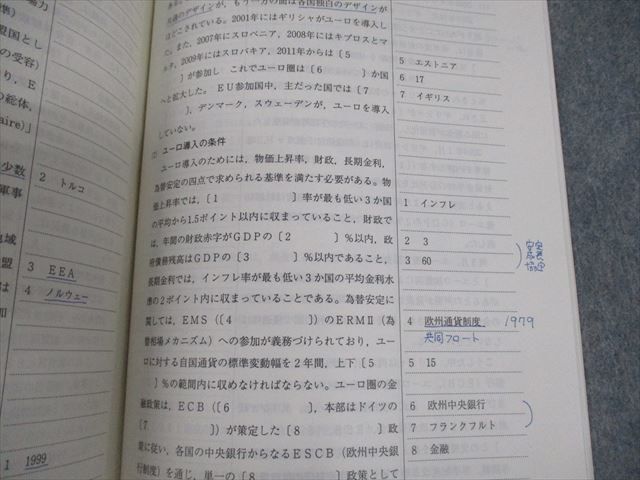 協力
準)
盟国とし
の受容)
り，E
の総体，
aire)」
少数
軍事
2 トルコ
地域
盟
3 EEA
は
4 ノルウェー
Ⅱ
1 1999
共通のデザインが，もう一方の面は各国独自のデザインが
ほどこされている。2001年にはギリシャがユーロを導入し
た。また，2007年にスロベニア，2008年にキプロスとマ
ルタ，2009年にスロバキア，2011年からは〔5
〕が参加し，これでユーロ圏は〔6 〕か国
へと拡大した。EU参加国中，主だった国では〔7
〕，デンマーク，スウェーデンが，ユーロを導入
していない。
(2) ユーロ導入の条件
ユーロ導入のためには，物価上昇率，財政，長期金利，
為替安定の四点で求められる基準を満たす必要がある。物
価上昇率では，〔1 〕率が最も低い3か国
の平均から1.5ポイント以内に収まっていること，財政で
は，年間の財政赤字がGDPの〔2 〕％以内，政
府債務残高はGDPの〔3 〕％以内であること，
長期金利では，インフレ率が最も低い3か国の平均金利水
準の2ポイント内に収まっていることである。為替安定に
関しては，EMS（〔4 〕）のERMⅡ（為
替相場メカニズム）への参加が義務づけられており，ユー
ロに対する自国通貨の標準変動幅を2年間，上下〔5
〕％の範囲内に収めなければならない。ユーロ圏の金
融政策は，ECB（〔6 〕，本部はドイツの
〔7 〕）が策定した〔8 〕政
策に従い，各国の中央銀行からなるESCB（欧州中央銀
行制度）を通じ，単一の〔8 〕政策として
5 エストニア
6 17
7 イギリス
1 インフレ
2 3
3 60
4 欧州通貨制度 1979
共同フロート
5 15
6 欧州中央銀行
7 フランクフルト
8 金融